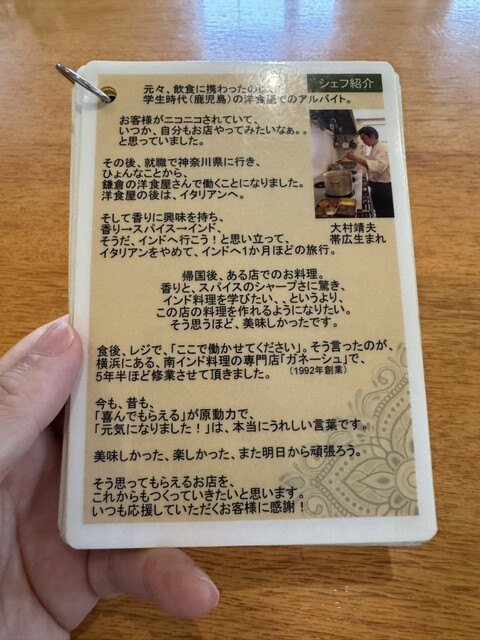 シェフ紹介
元々、飲食に携わったの
学生時代(鹿児島)の洋食屋でのアルバイト。
お客様がニコニコされていて、
いつか、自分もお店やってみたいなぁ。。
と思っていました。
その後、就職で神奈川県に行き、
ひょんなことから、
鎌倉の洋食屋さんで働くことになりました。
洋食屋の後は、イタリアンへ。
そして香りに興味を持ち、
香り→スパイス→インド、
そうだ、インドへ行こう!と思い立って、
イタリアンをやめて、インドへ1か月ほどの旅行。
大村靖夫
帯広生まれ
帰国後、ある店でのお料理。
香りと、スパイスのシャープさに驚き、
インド料理を学びたい、、というより、
この店の料理を作れるようになりたい。
そう思うほど、美味しかったです。
食後、レジで、「ここで働かせてください」。そう言ったのが、
横浜にある、南インド料理の専門店「ガネーシュ」で、
5年半ほど修業させて頂きました。 (1992年創業)
今も、昔も、
「喜んでもらえる」が原動力で、
「元気になりました!」は、本当にうれしい言葉です。
美味しかった、楽しかった、また明日から頑張ろう。
そう思ってもらえるお店を、
これからもつくっていきたいと思います。
いつも応援していただくお客様に感謝!